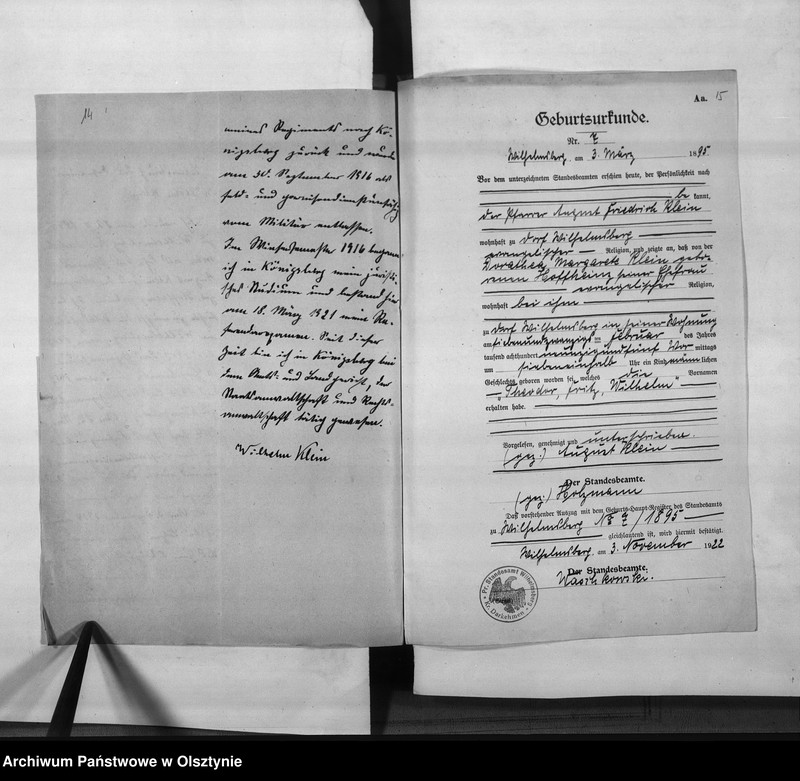 14
meines Regiments nach Kö-
nigsberg zurück und wurde
am 30. September 1916 als
feld- und garnisondienstunfähig
vom Militär entlassen.
Im Wintersemester 1916 begann
ich in Königsberg mein juristi-
sches Studium und bestand hier
am 18. März 1921 mein Re-
ferendarexamen. Seit dieser
Zeit bin ich in Königsberg bei
dem Amts- und Landgericht, der
Staatsanwaltschaft und Rechts-
anwaltschaft tätig gewesen.
Wilhelm Klein
Aa. 15
Geburtsurkunde.
Nr. 7
Wilhelmsberg, am 3. März 1895
Vor dem unterzeichneten Standesbeamten erschien heute, der Persönlichkeit nach
be kannt,
der Pfarrer August Friedrich Klein
wohnhaft zu Dorf Wilhelmsberg
evangelischer Religion, und zeigte an, daß von der
Dorothea Margarete Klein gebo-
renen Hoffheinz seiner Ehefrau
evangelischer Religion,
wohnhaft bei ihm
zu Dorf Wilhelmsberg in seiner Wohnung
am siebenundzwanzigsten Februar des Jahres
tausend achthundert neunzigundfünf Vor mittags
um siebeneinhalb Uhr ein Kind männlichen
Geschlechts geboren worden sei, welches die Vornamen
"Theodor, Fritz, Wilhelm"
erhalten habe.
Vorgelesen, genehmigt und unterschrieben.
(gez.) August Klein
Der Standesbeamte.
(gez.) Holzmann
Daß vorstehender Auszug mit dem Geburts-Haupt-Register des Standesamts
zu Wilhelmsberg No 7/1895
gleichlautend ist, wird hiermit bestätigt.
Wilhelmsberg, am 3. November 1922
Der Standesbeamte.
Pr. Standesamt Wilhelmsberg
Kr. Darkehmen
Archiwum Państwowe w Olsztynie